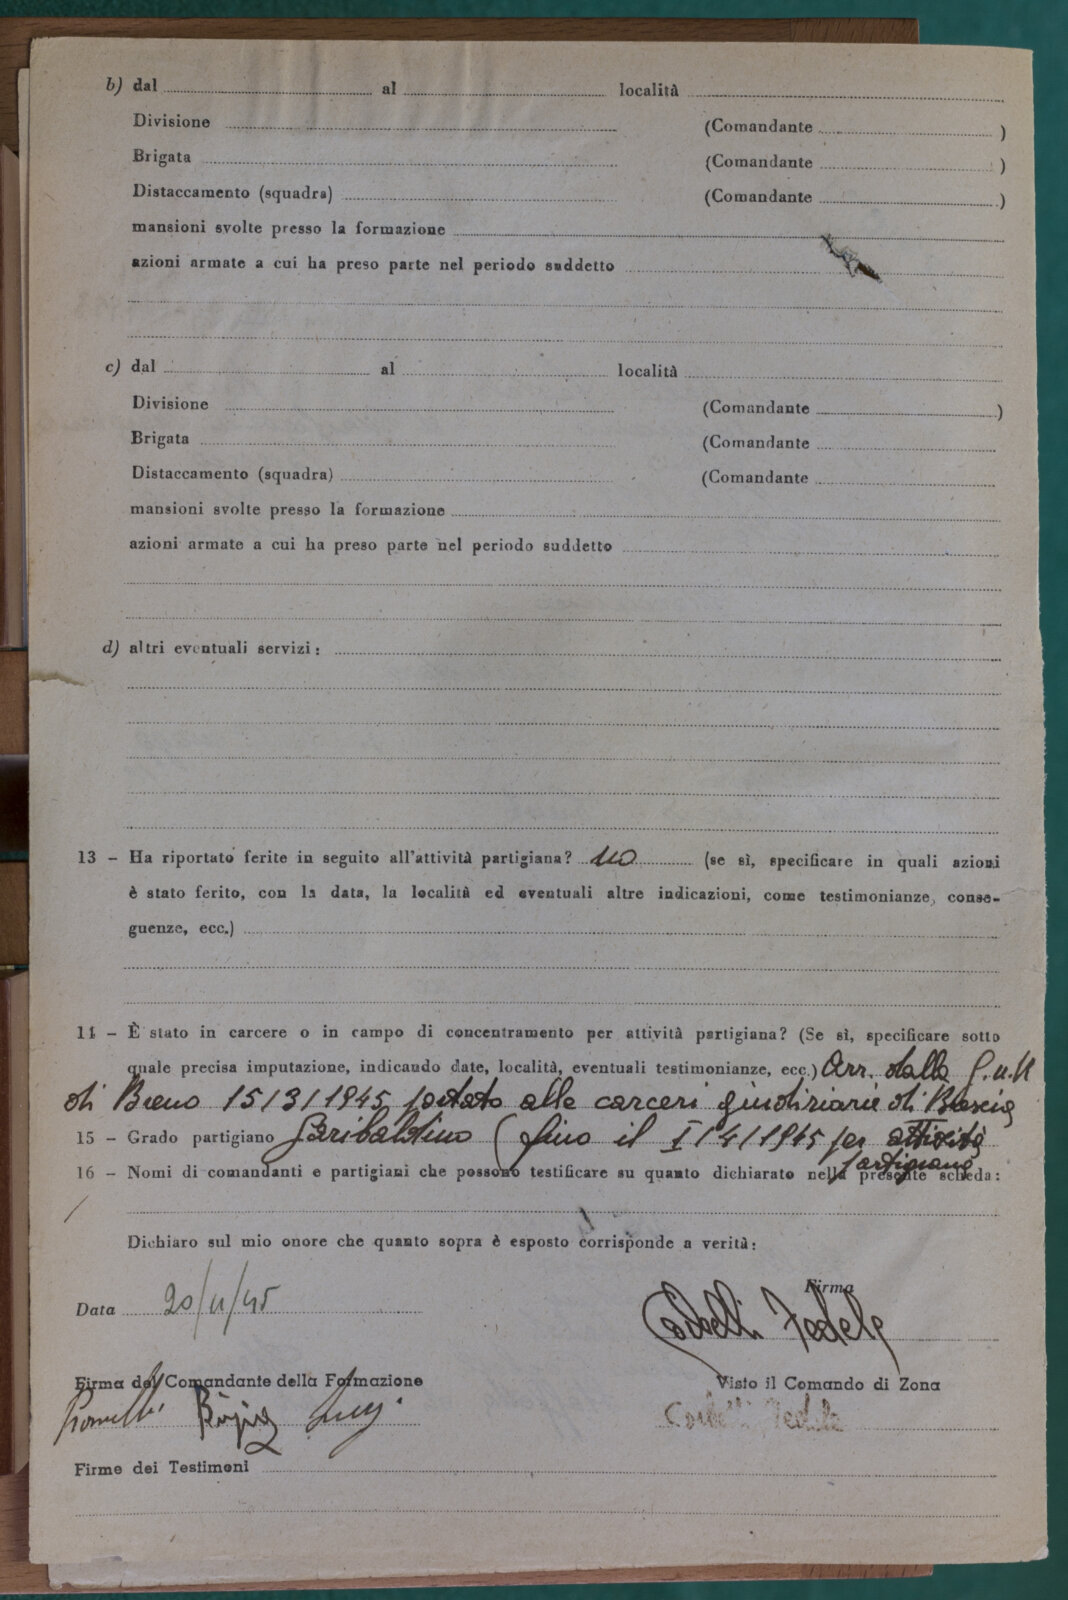 b) dal al località
Divisione (Comandante )
Brigata (Comandante )
Distaccamento (squadra) (Comandante )
mansioni svolte presso la formazione
azioni armate a cui ha preso parte nel periodo suddetto
c) dal al località
Divisione (Comandante )
Brigata (Comandante
Distaccamento (squadra) (Comandante
mansioni svolte presso la formazione
azioni armate a cui ha preso parte nel periodo suddetto
d) altri eventuali servizi:
13 - Ha riportato ferite in seguito all'attività partigiana? no (se sì, specificare in quali azioni
è stato ferito, con la data, la località ed eventuali altre indicazioni, come testimonianze, conse-
guenze, ecc.)
14 - È stato in carcere o in campo di concentramento per attività partigiana? (Se sì, specificare sotto
quale precisa imputazione, indicando date, località, eventuali testimonianze, ecc.) Arr. dalla G.N.R
di Breno 15/3/1945 portato alle carceri giudiziarie di Brescia
15 - Grado partigiano Garibaldino (fino il I/4/1945 per attività
partigiana
16 - Nomi di comandanti e partigiani che possono testificare su quanto dichiarato nella presente scheda:
Dichiaro sul mio onore che quanto sopra è esposto corrisponde a verità:
Firma
Data 20/11/45
Fedele
Firma del Comandante della Formazione Visto il Comando di Zona
Fedele
Firme dei Testimoni